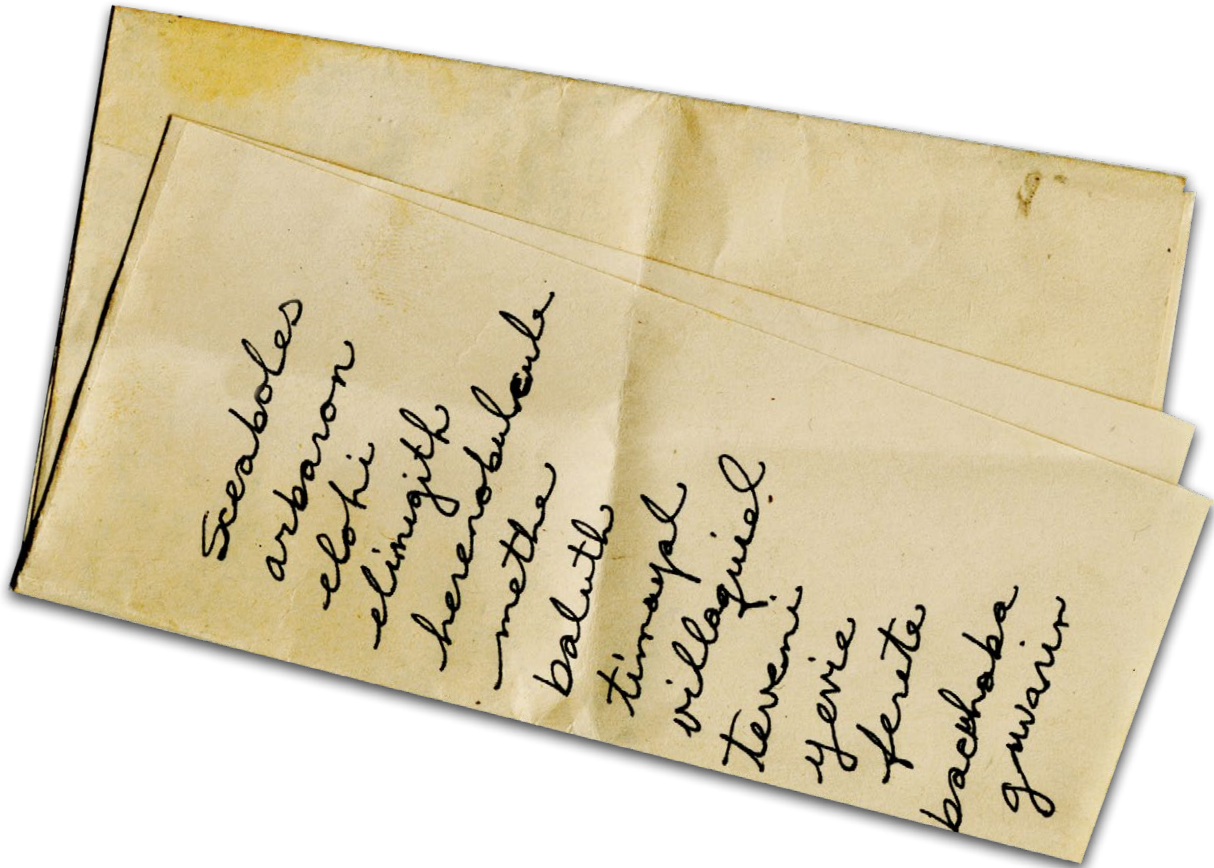 Sceaboles
arbaron
elohi
elimigith
herenobulcule
methe
baluth
timayal
villaquiel
teveni
yevie
ferete
bacuhaba
guvarin